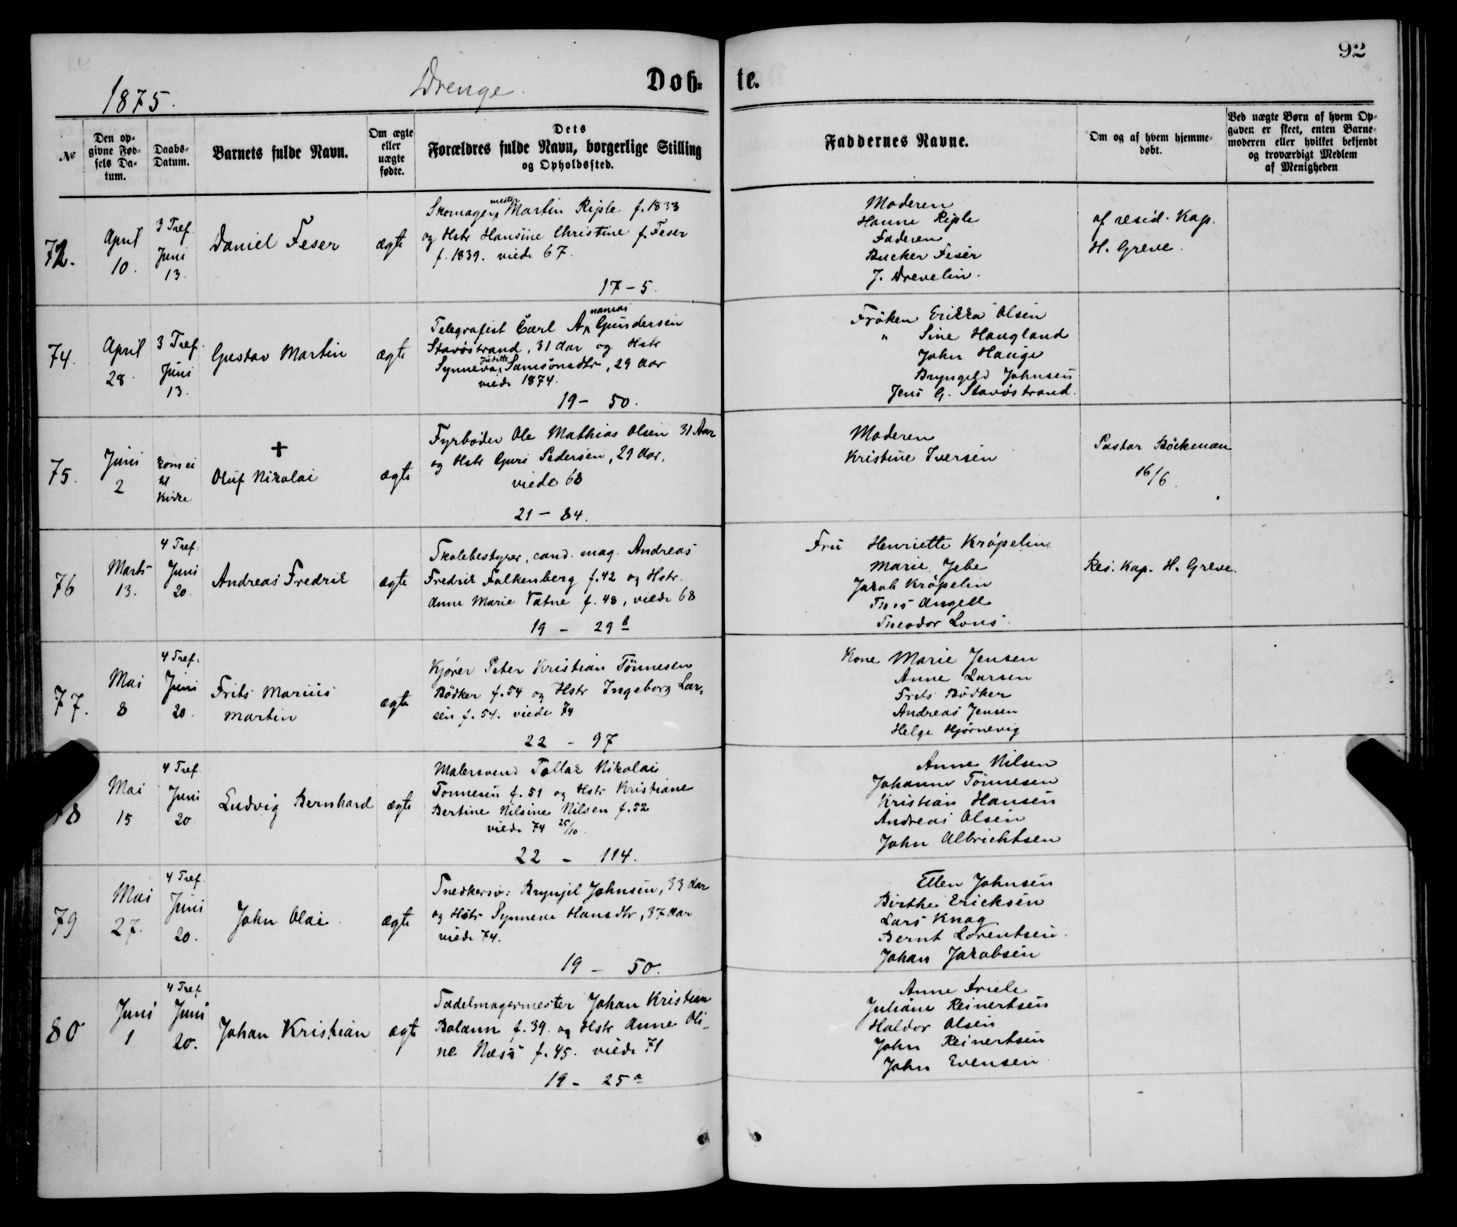 92
1875.
Drenge.
Døb-te.
No
Den opgivne Fødsels Datum.
Daabs-Datum.
Barnets fulde Navn.
Om ægte eller uægte fødte.
Dets Forældres fulde Navn, borgerlige Stilling og Opholdssted.
Faddernes Navne.
Om og af hvem hjemmedøbt.
Ved uægte Børn af hvem Opgaven er skeet, enten Barnemoderen eller hvilket bekjendt og troværdigt Medlem af Menigheden
72.
April 10.
3 Tref. Juni 13.
Daniel Feser
ægte
Skomagermester Martin Riple f. 1833
og Hstr Hansine Christine f. Feser
f. 1839. viede 67.
17 - 5.
Moderen
Hanne Riple
Faderen
Bucker Feser
J. Drevelin.
af resid. Kap.
H. Greve.
74.
April 28.
3 Tref. Juni 13.
Gustav Martin
ægte
Telegrafist Carl Gundersen
Stavøstrand, 31 Aar og Hstr
Synneva Samsonsdtr, 29 Aar
viede 1874.
19 - 50.
Frøken Erikka Olsen
" Sine Haugland
John Hauge
Bryngeld Johnsen
Jens G. Stavøstrand.
75.
Juni 2
kom ei til Kirke
+
Oluf Nikolai
ægte
Fyrbøder Ole Mathias Olsen 31 Aar
og Hstr Guri Pedersen, 29 Aar,
viede 68
21 - 84.
Moderen
Kristine Iversen
Pastor Bøckman
16/6.
76
Marts 13.
4 Tref. Juni 20.
Andreas Fredrik
ægte
Skolebestyrer, cand. mag. Andreas
Fredrik Falkenberg f. 42 og Hstr.
Anne Marie Vatne f. 48, viede 68
19 - 29 b
Fru Henriette Krøpelin
Marie Jebe
Jacob Krøpelin
Angell
Theodor Lons.
Res. Kap. H. Greve.
77.
Mai 8
4 Tref. Juni 20.
Frits Marius
Martin
ægte
Kjører Peter Kristian Tønnesen
Bødker f. 54 og Hstr Ingeborg Lar-
sen f. 54. viede 74
22 - 97
Kone Marie Jensen
Anne Larsen
Frits Bødker
Andreas Jensen
Helge Hjørnevig
78
Mai 15
4 Tref. Juni 20.
Ludvig Bernhard
ægte
Malersvend Tollak Nikolai
Tønnesen f. 51 og Hstr Kristiane
Bertine Nilsine Nilsen f. 52
viede 74 25/10.
22 - 114.
Anne Nilsen
Johanne Tønnesen
Kristian Hansen
Andreas Olsen
John Albrichtsen
79
Mai 27.
4 Tref. Juni 20.
John Olai.
ægte
Snedkersv: Brynjel Johnsen, 33 Aar
og Hstr Synneve Hansdtr, 37 Aar
viede 74.
19 - 50.
Ellen Johnsen
Birthe Ericksen
Lars Knag
Bernt Lorentsen.
Johan Jakobsen
80
Juni 1
4 Tref. Juni 20.
Johan Kristian
ægte
Sadelmagermester Johan Kristian
Bolann f. 39. og Hstr Anne Oli-
ne Næss f. 45. viede 71
19 - 25 a
Anne Friele
Juliane Reinertsen
Haldor Olsen
John Reinertsen
John Evensen